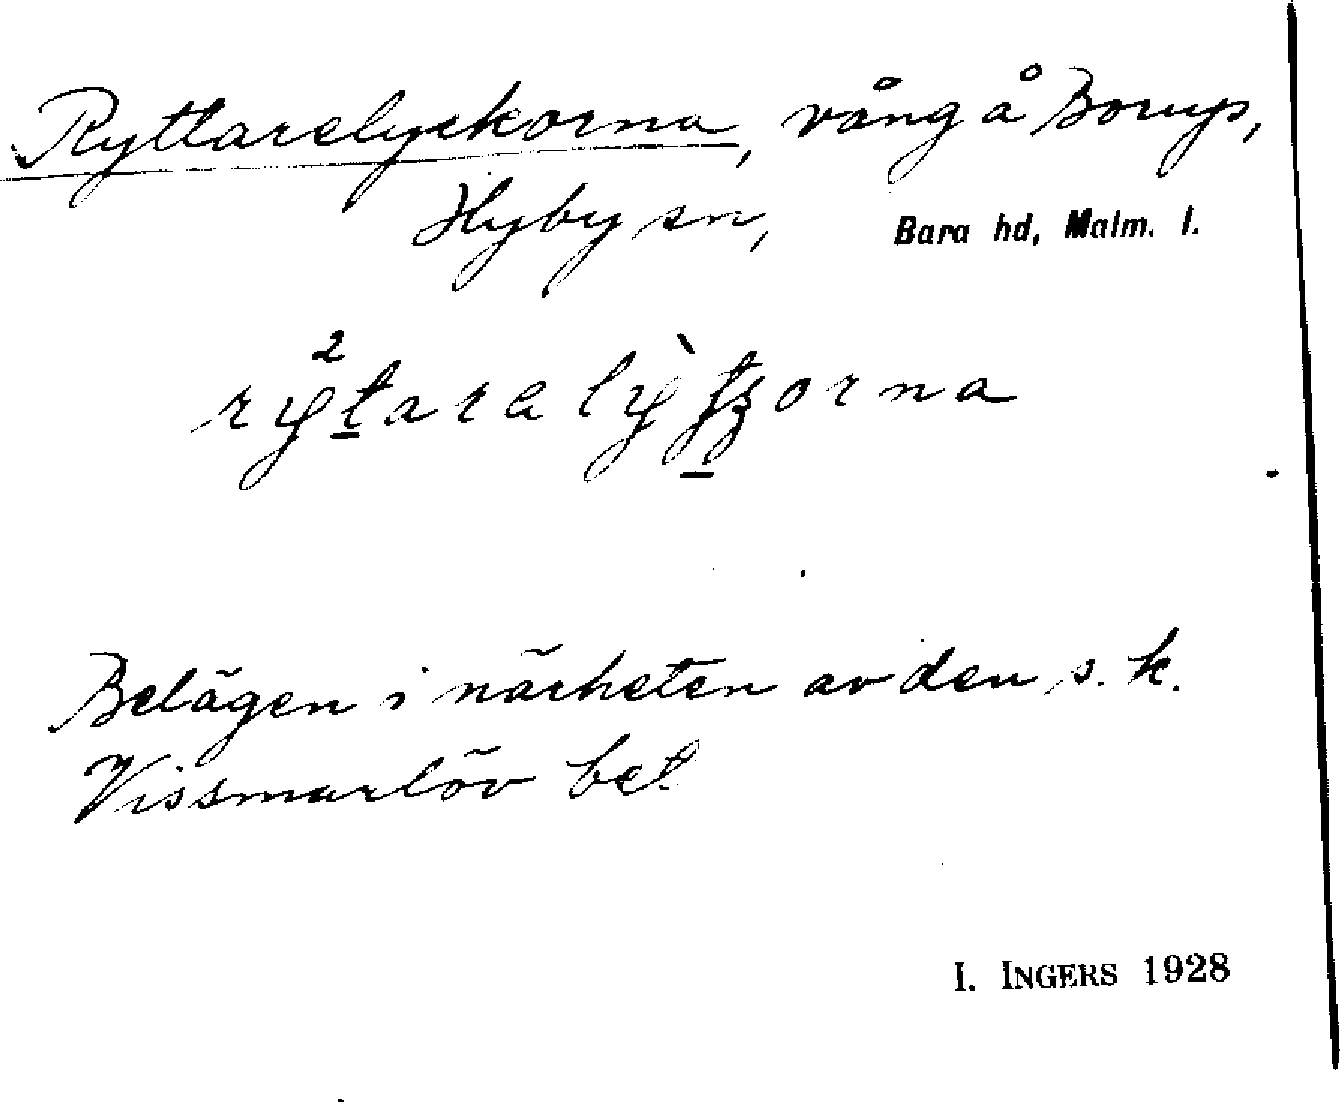 Ryttarelyckorna, vång å Borup,
Hyby sn, Bara hd, Malm. l.
Belägen i närheten av den s. k.
Vissmarlöv bet.
I. INGERS 1928